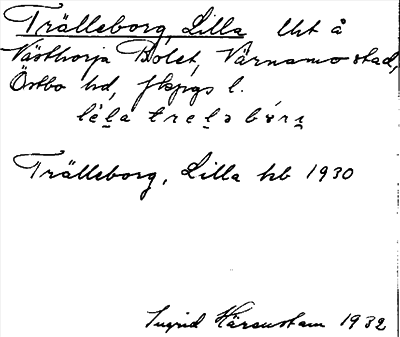 Trälleborg, Lilla lht å
Västhorja Bolet, Värnamo stad,
Östbo hd, Jkpgs l.
Trälleborg, Lilla hb 1930
Ingrid Härenstam 1932